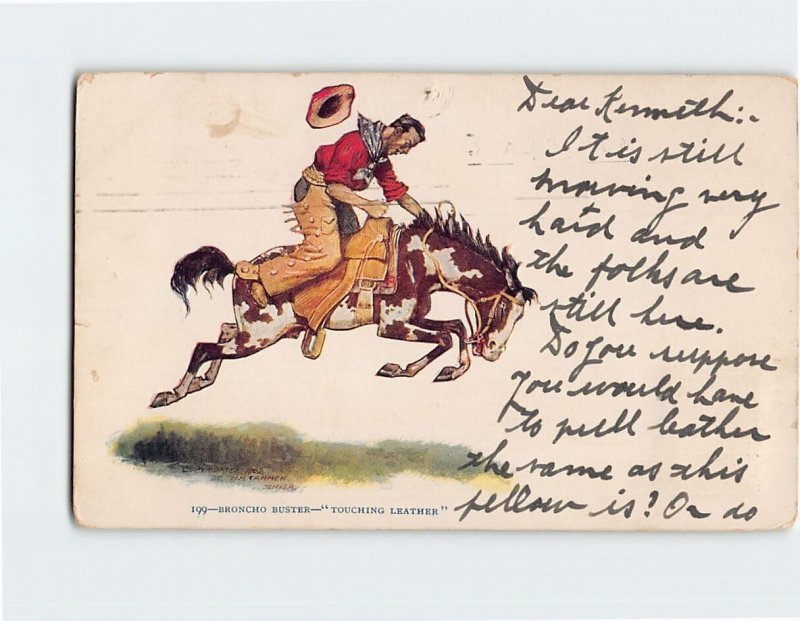 Dear Kenneth:-
It is still
snowing very
hard and
the folks are
still here.
Do you suppose
you would have
to pull leather
the same as this
fellow is? Or do
COPYRIGHTED 1902
BY H.H. TAMMEN
DENVER
199—BRONCHO BUSTER—"TOUCHING LEATHER"